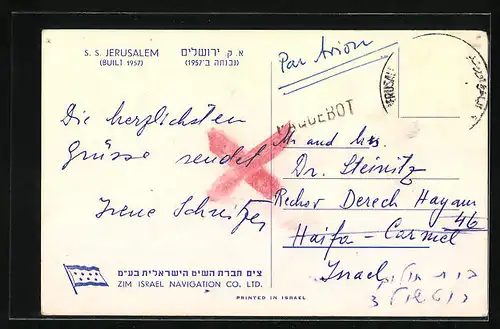 S. S. JERUSALEM
(BUILT 1957)
א. ק. ירושלים
(נבנתה ב־1957)
Par Avion
JERUSALEM
PAQUEBOT
Die herzlichsten
Grüsse sendet
Irene Schnitzer
Mr and Mrs.
Dr. Steinitz
Rechov Derech Hayam
46
Haifa-Carmel
Israel
צים חברת השיט הישראלית בע״מ
ZIM ISRAEL NAVIGATION CO. LTD.
PRINTED IN ISRAEL